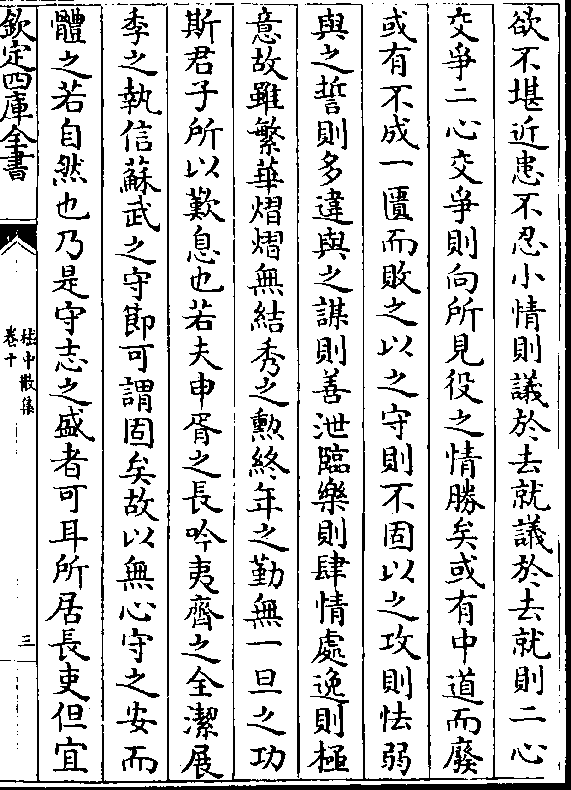 欲不堪近患不忍小情則議於去就議於去就則二心
交爭二心交爭則向所見役之情勝矣或有中道而廢
或有不成一匱而敗之以之守則不固以之攻則怯弱
與之誓則多違與之謀則善泄臨樂則肆情處逸則極
意故雖繁華熠熠無結秀之勲終年之勤無一旦之功
斯君子所以歎息也若夫申胥之長吟夷齊之全潔展
季之執信蘇武之守節可謂固矣故以無心守之安而
體之若自然也乃是守志之盛者可耳所居長吏但宜
欽定四庫全書
嵇中散集
卷十
三